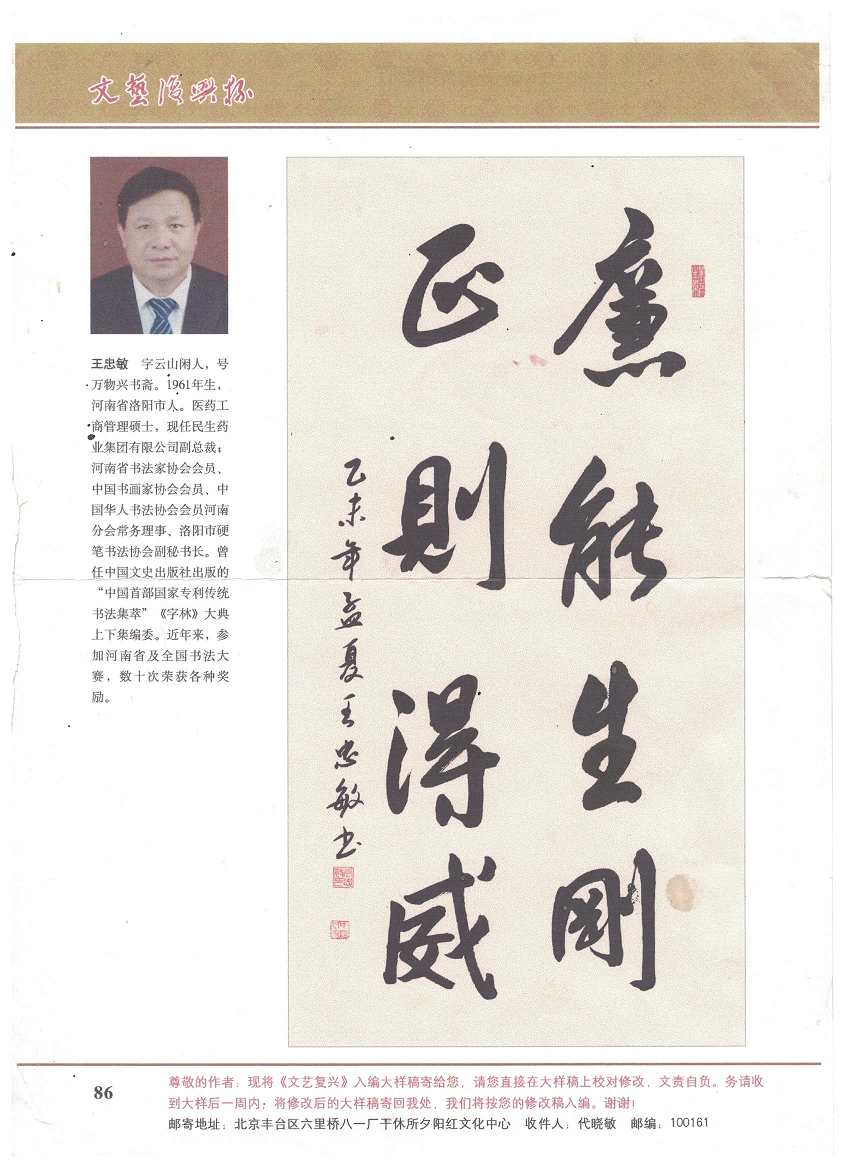 文藝復興杯
王忠敏　字云山闲人，号
万物兴书斋。1961年生，
河南省洛阳市人。医药工
商管理硕士，现任民生药
业集团有限公司副总裁；
河南省书法家协会会员、
中国书画家协会会员、中
国华人书法协会会员河南
分会常务理事、洛阳市硬
笔书法协会副秘书长。曾
任中国文史出版社出版的
“中国首部国家专利传统
书法集萃”《字林》大典
上下集编委。近年来，参
加河南省及全国书法大
赛，数十次荣获各种奖
励。
廉能生剛
正則得威
乙未年孟夏王忠敏书
86
尊敬的作者：现将《文艺复兴》入编大样稿寄给您，请您直接在大样稿上校对修改，文责自负。务请收
到大样后一周内：将修改后的大样稿寄回我处，我们将按您的修改稿入编。谢谢！
邮寄地址：北京丰台区六里桥八一厂干休所夕阳红文化中心　收件人：代晓敏　邮编：100161